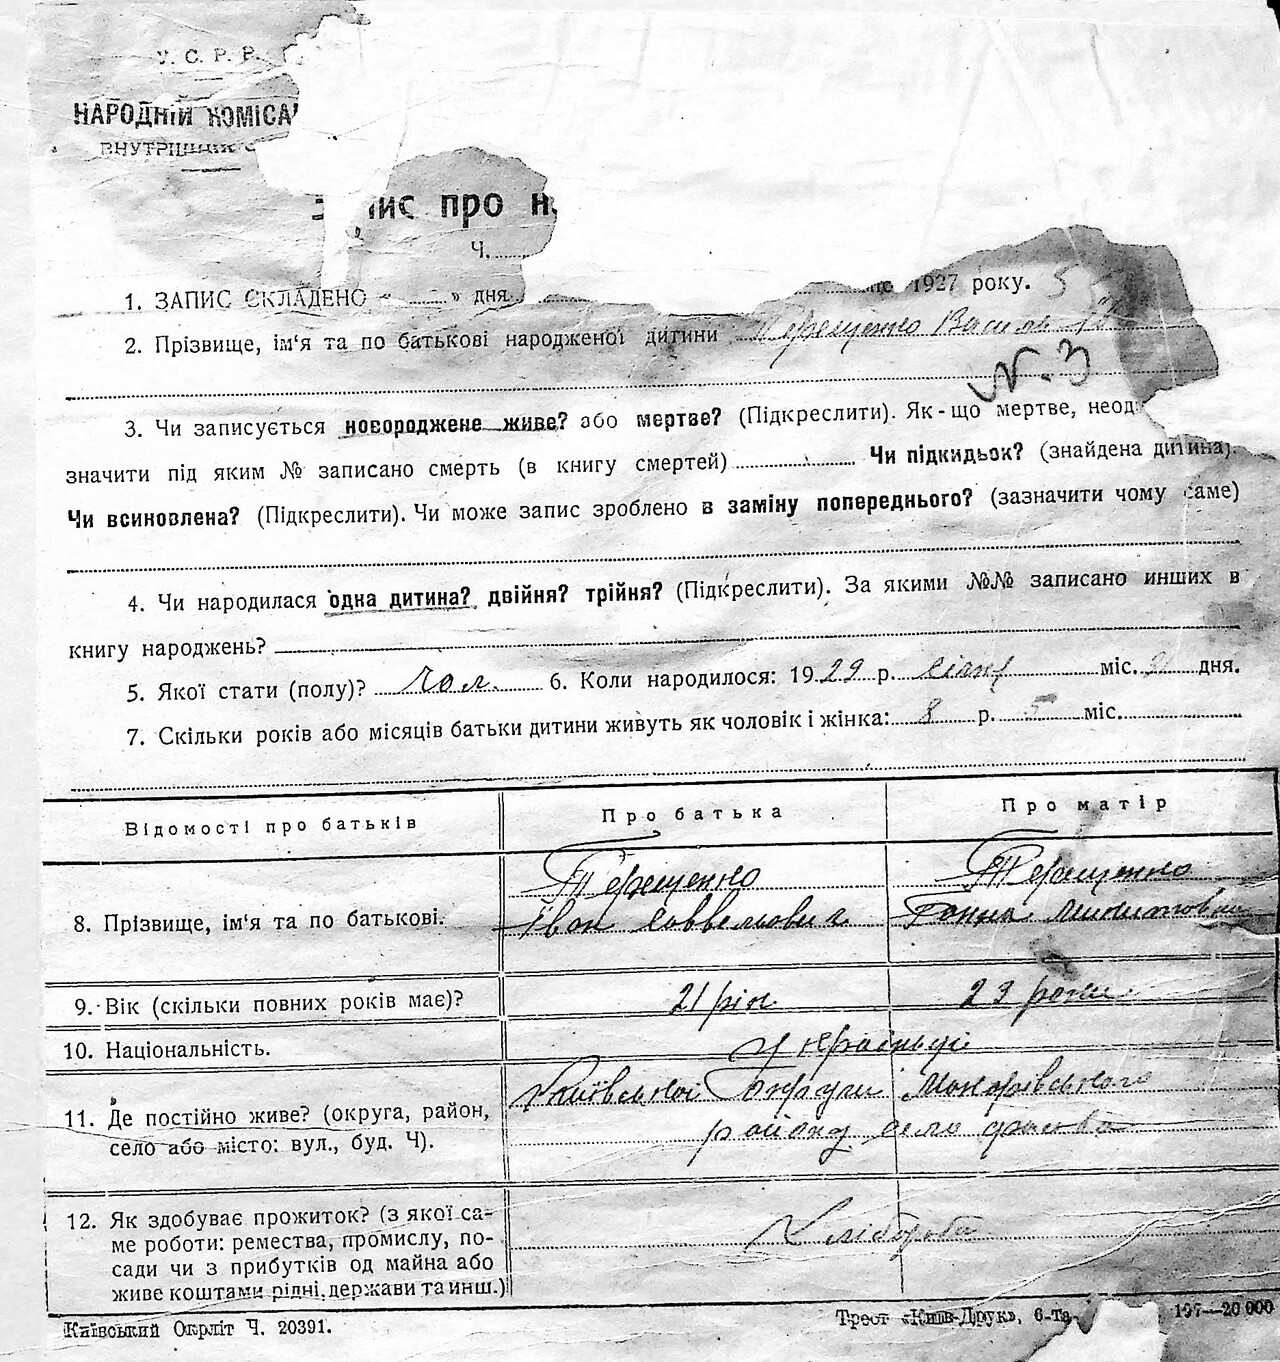 У. С. Р. Р.
НАРОДНІЙ КОМІСА
ВНУТРІШНІХ С
ис про н
Ч.
1. ЗАПИС СКЛАДЕНО „ “ дня 1927 року.
2. Прізвище, ім‘я та по батькові народженої дитини Терещенко Василь
№ 3
3. Чи записується новороджене живе? або мертве? (Підкреслити). Як-що мертве, неод
значити під яким № записано смерть (в книгу смертей) Чи підкидьок? (знайдена дитина).
Чи всиновлена? (Підкреслити). Чи може запис зроблено в заміну попереднього? (зазначити чому саме)
4. Чи народилася одна дитина? двійня? трійня? (Підкреслити). За якими №№ записано инших в
книгу народжень?
5. Якої стати (полу)? чол. 6. Коли народилося: 1929 р. січня міс. дня.
7. Скільки років або місяців батьки дитини живуть як чоловік і жінка: 8 р. 5 міс.
Відомості про батьків Про батька Про матір
Терещенко Терещенко
8. Прізвище, ім‘я та по батькові. Іван Саввелович Ганна
9. Вік (скільки повних років має)? 21 рік 23 роки
10. Національність. українці
Київської Округи Макарівського
11. Де постійно живе? (округа, район, району село Фасова
село або місто: вул., буд. Ч).
12. Як здобуває прожиток? (з якої са- Хлібороби
ме роботи: ремества, промислу, по-
сади чи з прибутків од майна або
живе коштами рідні, держави та инш.)
Київський Окрліт Ч. 20391. Трест «Київ-Друк», 6-та 197—20 000